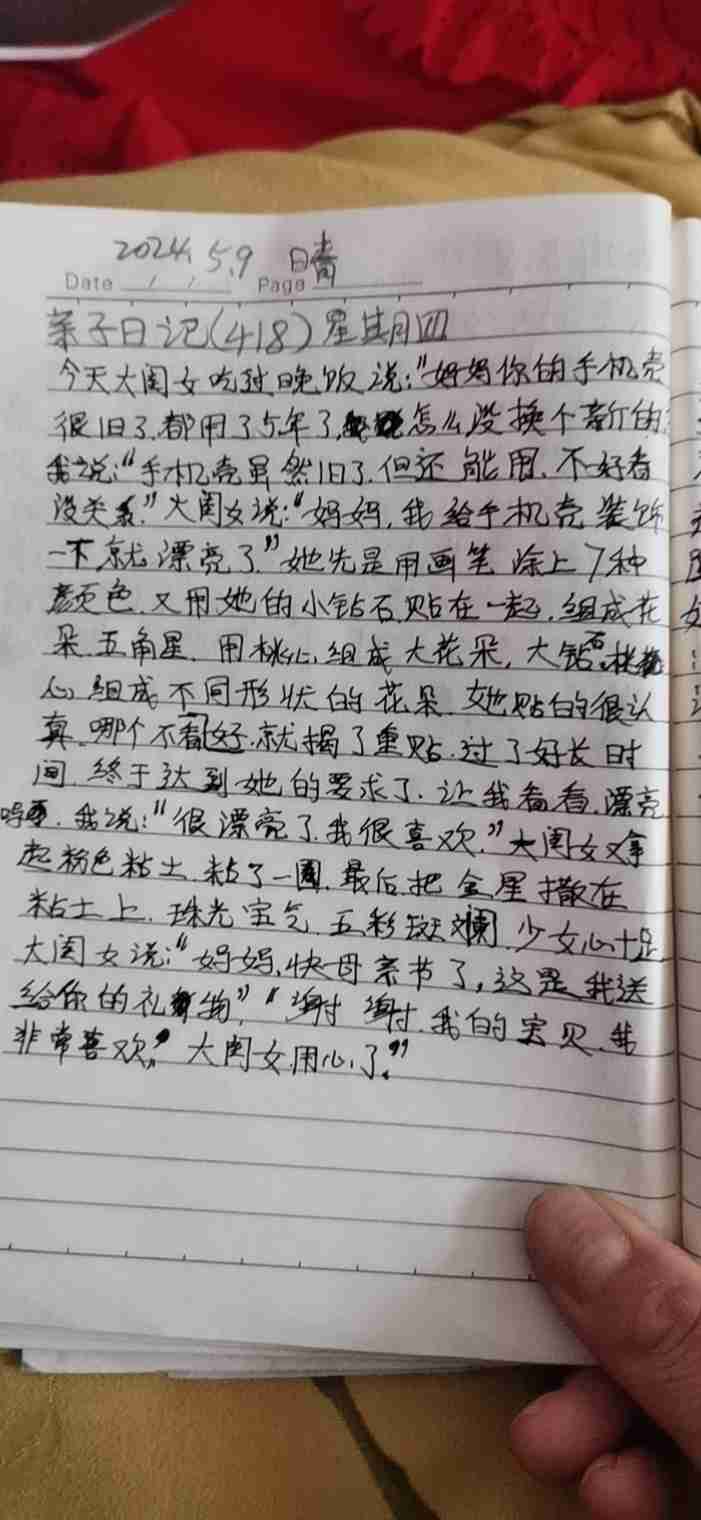 2024.5.9 晴
Date / / Page
亲子日记(418)星期四
今天大闺女吃过晚饭说:"妈妈你的手机壳
很旧了.都用了5年了,怎么没换个新的.
我说:"手机壳虽然旧了.但还能用.不好看
没关系."大闺女说:"妈妈,我给手机壳装饰
一下就漂亮了."她先是用画笔涂上7种
颜色.又用她的小钻石.贴在一起.组成花
朵.五角星.用桃心组成大花朵,大钻石.桃
心组成不同形状的花朵.她贴的很认
真.哪个不看好.就揭了重贴.过了好长时
间.终于达到她的要求了.让我看看.漂亮
吗.我说:"很漂亮了.我很喜欢."大闺女又拿
起粉色粘土.粘了一圈.最后把金星撒在
粘土上.珠光宝气.五彩斑斓.少女心十足
大闺女说:"妈妈,快母亲节了,这是我送
给你的礼物""谢谢.我的宝贝.我
非常喜欢."大闺女.用心了."